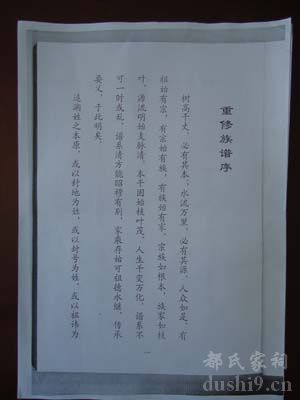 重修族谱序
树高千丈，必有其本；水流万里，必有其源，人众如是。有
祖始有宗，有宗始有族，有族始有家。宗族如根本，族家如枝
叶。源流明始支脉清，本干固始枝叶茂。人生千变万化，谱系不
可一时或乱。谱系清方能昭穆有别，家乘存始可祖德永继，传承
要义，于此明矣。
追溯姓之本原，或以封地为姓，或以封号为姓，或以祖讳为
一
都氏家祠
dushi9.cn